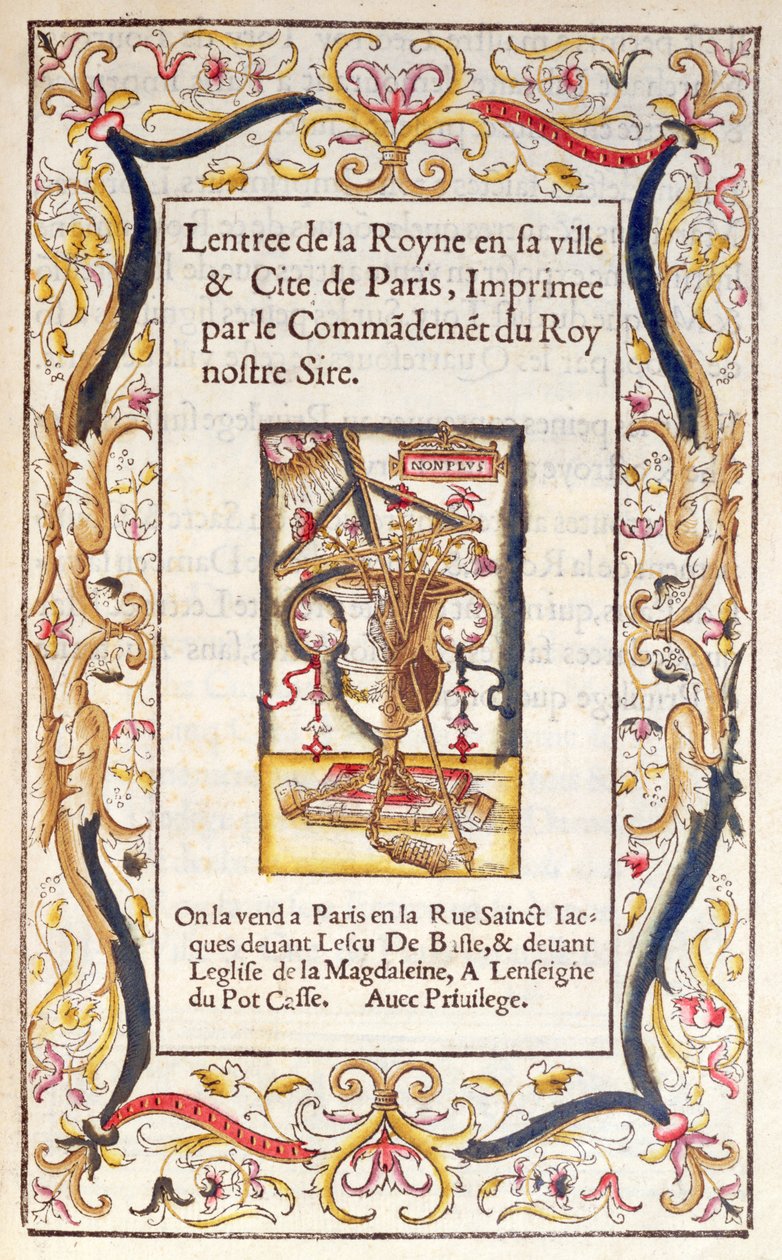 Lentree de la Royne en ſa ville
& Cite de Paris, Imprimee
par le Commãdemẽt du Roy
noſtre Sire.
NON PLVS
On la vend a Paris en la Rue Sainct Iac⸗
ques deuant Leſcu De Baſle, & deuant
Legliſe de la Magdaleine, A Lenſeigne
du Pot Caſſe. Auec Priuilege.